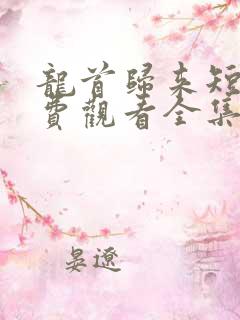 龍首歸來短
費觀看全集
晏遼